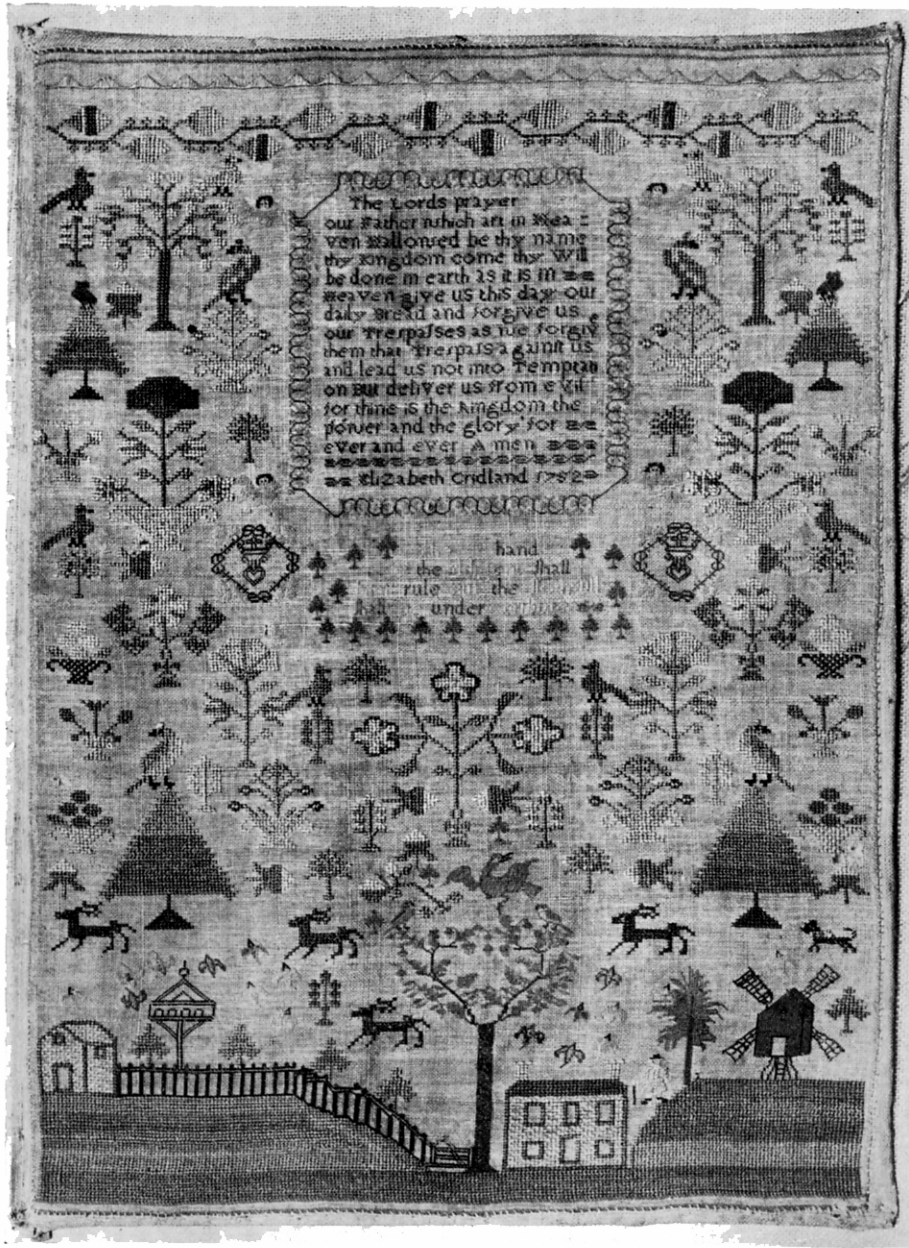 The Lords prayer
our Father which art in Hea =
ven Hallowed be thy name
thy kingdom come thy Will
be done in earth as it is in
Heaven give us this day our
daily Bread and forgive us
our Trespasses as we forgiv
them that Trespass against us
and lead us not into Temptati
on But deliver us from evil
for thine is the kingdom the
power and the glory for
ever and ever A men
Elizabeth Cridland 1752
hand
the shall
rule the
under